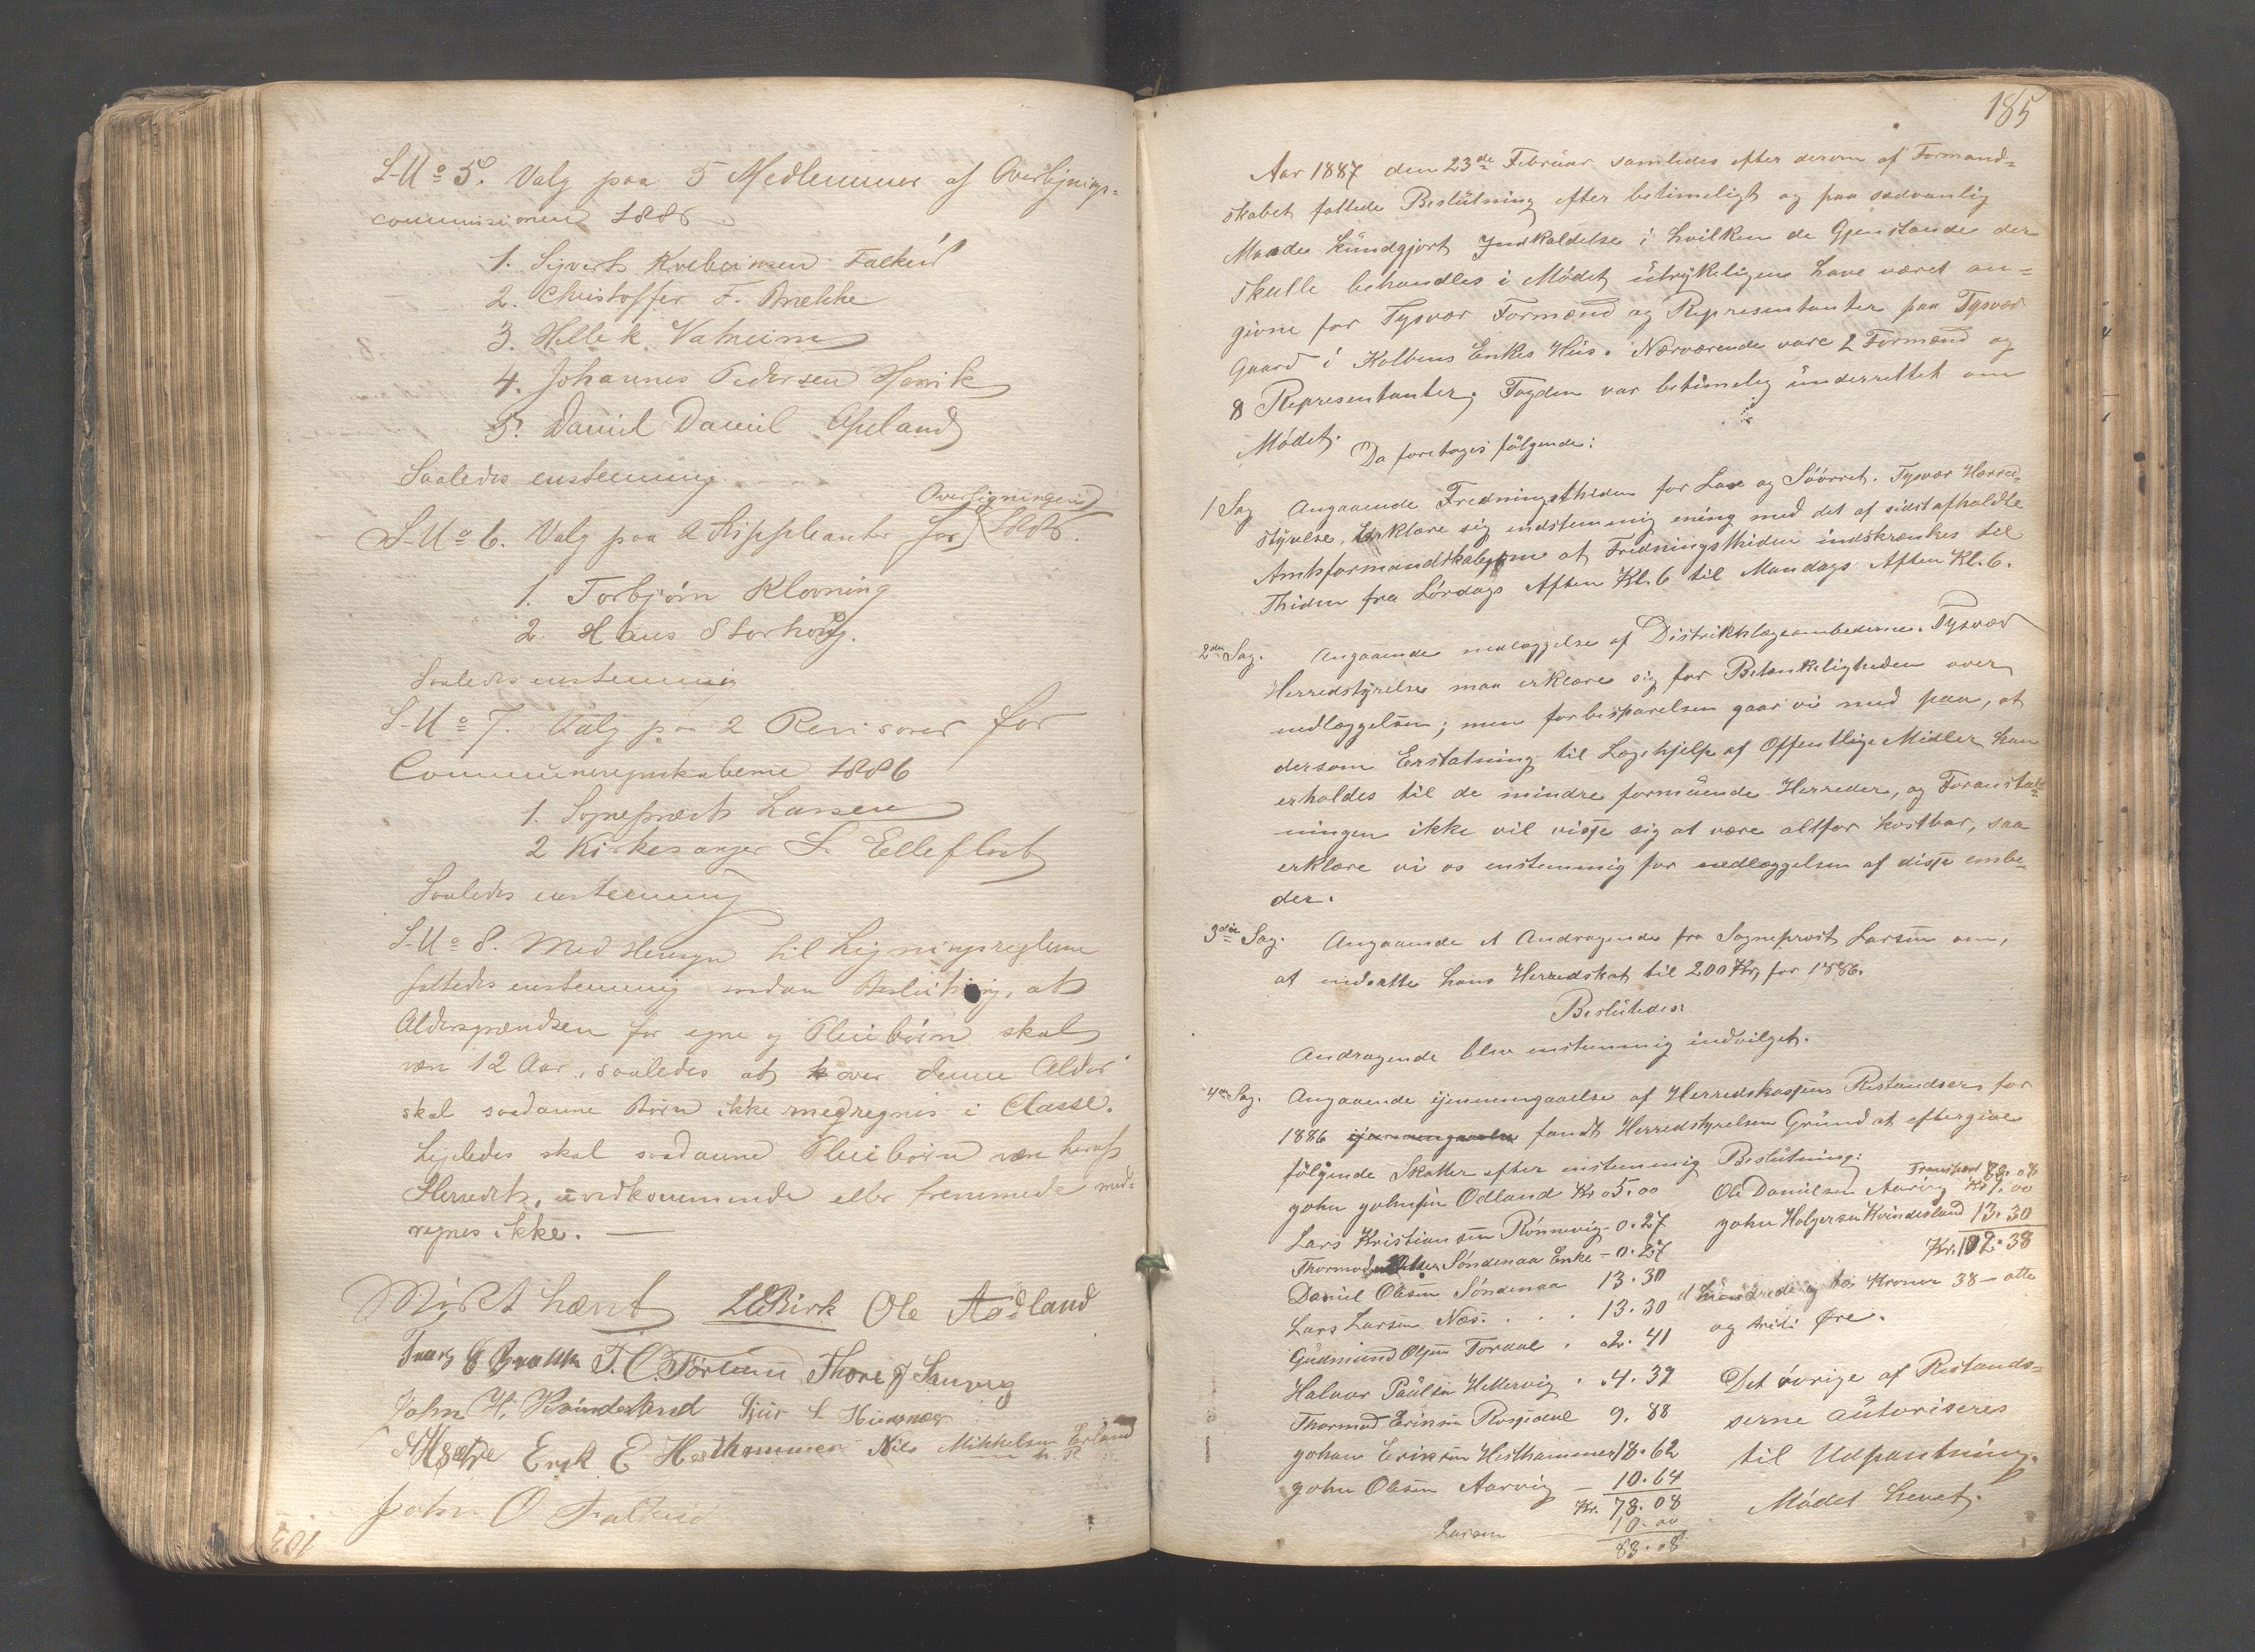 S-No 5. Valg paa 5 Medlemmer af Overlignings-
commissionen 1886
1. Sijvert Falkeid
2. Christoffer F. Brekke
3. Helle K. Vatneim
4. Johannes Pedersen Hervik
5. Daniel Daniel Apeland
Saaledes enstemmig.
Overligningen
S-No 6. Valg paa 2 Suppleanter for 1886.
1. Torbjörn Klovning
2. Hans Storhoug.
Saaledes enstemmig
S-No 7. Valg på 2 Revisorer for
Communeregnskaberne 1886
1. Sogneprest Larsen
2 Kirkesanger S. Elleflot
Saaledes enstemmig
S-No 8. Med Hensyn til Ligningsreglerne
fattedes enstemmig sodan Beslutning, at
Aldersgrændsen for egne og Pleiebörn skal
være 12 Aar, saaledes at over denne Alder
skal saadanne Börn ikke medregnes i Classe.
Ligeledes skal saadanne Pleiebörn være
Herredets, uvedkommende eller fremmede med-
regnes ikke.
Mödet hævet L Birk Ole Aadland
T. C. Förland Thore J Sannvig
John H. Kvindesland Sjur S.
Erik E Hesthammer Nils Mikkelsen Erland
John O Falkeid
185
Aar 1887 den 23de Februar samledes efter derom af Formand-
skabet fattede Beslutning efter betimeligt og paa sædvanlig
Maade kundgjort Indkaldelse i hvilken de Gjenstande der
skulle behandles i Mödet, utrykeligen have været an-
givne for Tysvær Formænd og Representanter paa Tysvær
Gaard i Kolbens Enkes Hus. Nærværende vare 2 Formænd og
8 Representanter. Fogden var betimelig underrettet om
Mödet.
Da foretages fölgende:
1 Sag Angaaende Fredningsthiden for Lax og Söörret. Tysvær Herred-
styrelse, Erklære sig endstemmig enig med det af sidst afholdte
Amtsformandskab om at Fredningsthiden indskrænkes til
Thiden fra Lördags Aften Kl. 6 til Mandags Aften Kl. 6.
2den Sag. Angaaende nedlæggelse af Distriktslægeembederne. Tysvær
Herredstyrelse maa erklære sig for Betænkeligheden over
nedlæggelsen; men for besparelsen gaar vi med paa, at
dersom Erstatning til Lægehjelp af Offentlige Midler kan
erholdes til de mindre formående Herreder, og Foranstalt-
ningen ikke vil visse sig at være altfor kostbar, saa
erklære vi os enstemmig for nedlæggelsen af disse embe-
der.
3die Sag. Angaaende et Andragende fra Sogneprest Larsen om,
at nedsætte hans Herredskat til 200 Kr. for 1886.
Beslutedes:
Andragende blev enstemmig indvilget.
4de Sag. Angaaende ijennemgaaelse af Herredskassens Restandser for
1886 ijennemgaaelse fandt Herredstyrelsen Grund at eftergive
fölgende Skatter efter enstemmig Beslutning:
John Johnsen Odland Kr. 5.00
Lars Kristiansen Rönnevig - 0.27
Thormod Söndenaa Enke - 0.27
Daniel Olsen Söndenaa 13.30
Lars Larsen Næs. . . . 13.30
Gudmund Olsen Tordal . 2.41
Halvor Paulsen Hellervig . 4.39
Thormod Eriksen Rossedal 9.88
Johan Eriksen Hesthammer 18.62
John Olsen Aarvig - 10.64
Kr. 78.08
Larsen 10.00
88.08
Transport 88.08
Ole Danielsen Aarvig Kr 1.00
John Holgersen Kvindesland 13.30
Kr. 102.38
et hundrede og to Kroner 38 - otte
og tredi Øre.
Det övrige af Restand-
serne autoriseres
til Udpantning.
Mödet hevet.